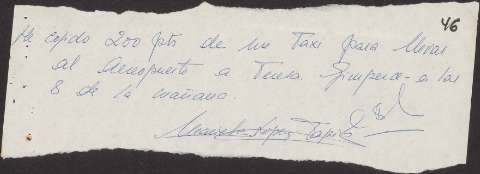 46
He cogido 200 pts de un Taxi para llevar
al Aeropuerto a Teresa Gimpera a las
8 de la mañana.
Manuel Lopez Tapia